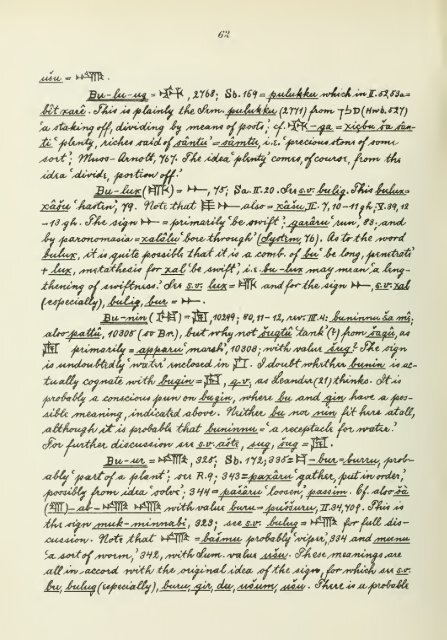 62
ušu = .
Bu-lu-ug = , 2768; Sb. 169 = pulukku which in II. 52,53a=
bît xarê. This is plainly the Sem. pulukku (2771) from פלך (Hwb. 527)
'a staking off, dividing by means of posts'; cf. -ga = ša
ti 'plenty, riches said of sântu' = sâmtu, i.e. 'precious stone of some
sort'; Muss-Arnolt, 767. The idea 'plenty' comes, of course, from the
idea 'divide, portion off.'
Bu-lux () = , 75; Sa. II. 20. See s.v. bulig. This bulux=
xâšu 'hasten', 79. Note that also = xâšu, II. 7, 10-11 gh; V. 39, 12
-13 gh. The sign = primarily 'be swift'; garâru 'run', 83; and
by paronomasia = xalâlu 'bore through' (System, 76). As to the word
bulux, it is quite possible that it is a comb. of bu 'be long, penetrate'
+ lux, metathesis for xal 'be swift', i.e. bu-lux may mean 'a leng-
thening of swiftness.' See s.v. lux = and for the sign , s.v. xal
(especially), bulig, bur = .
Bu-nin () = , 10299; 80, 11-12, rev. III. 4: buninnu ša mê;
also pattû, 10305 (so Br.), but why not šugtû 'tank' (?) from šagû, as
 primarily = apparu 'marsh', 10308; with value sug? The sign
is undoubtedly 'water' inclosed in . I doubt whether bunin is ac-
tually cognate with bugin = , q.v. as Leander (21) thinks. It is
probably a conscious pun on bugin, where bu and gin have a pos-
sible meaning, indicated above. Neither bu nor nin fit here at all,
although it is probable that buninnu = 'a receptacle for water.'
For further discussion see s.v. , sug, šug = .
Bu-ur = , 325; Sb. 172, 335 = -bur = burru, prob-
ably 'part of a plant'; see R. 9; 343 = paxâru 'gather, put in order',
possibly from idea 'solve'; 344 = pašâru 'loosen', passim. Cf. also šâ
()-ar- with value buru = pišširu, II. 34, 70g. This is
the sign muk-minnabi, 323; see s.v. bulug = for full dis-
cussion. Note that = bašmu probably 'viper', 334 and munu
'a sort of worm', 342, with Sum. value ušu. These meanings are
all in accord with the original idea of the sign, for which see s.v.
bu, bulug (especially), buru, gir, du, ušum, ušu. There is a probable